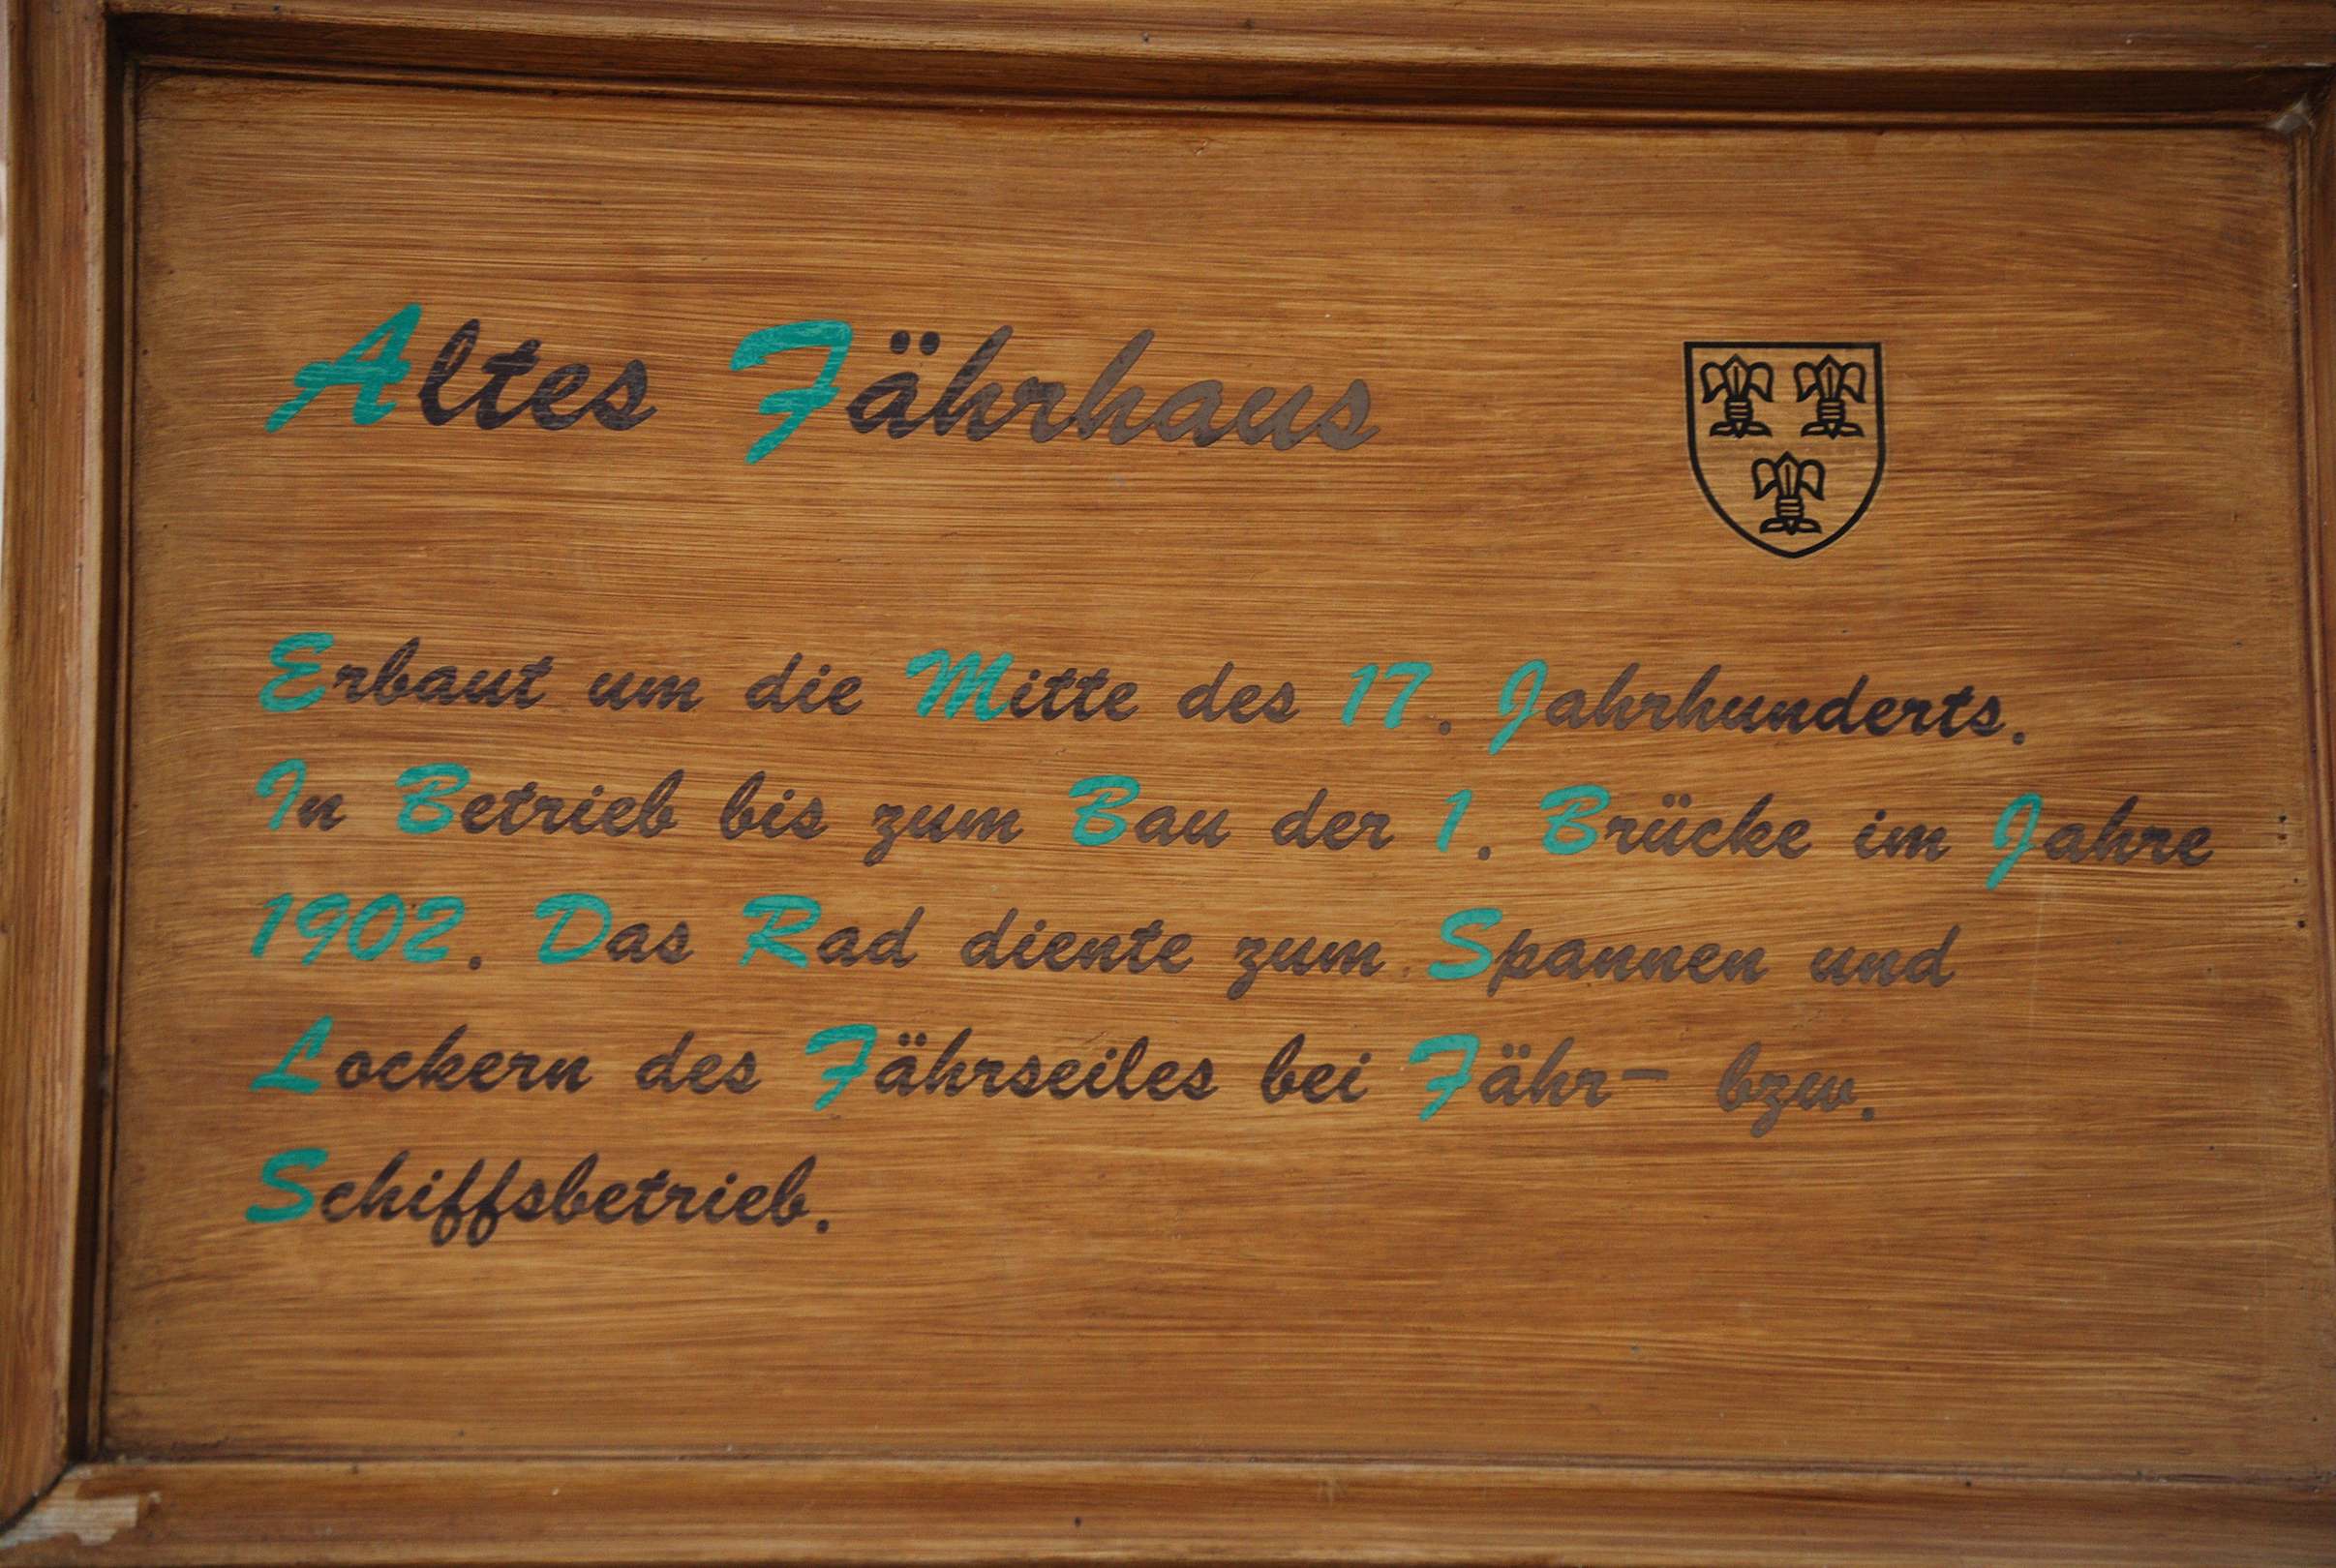 Altes Fährhaus
Erbaut um die Mitte des 17. Jahrhunderts.
In Betrieb bis zum Bau der 1. Brücke im Jahre
1902. Das Rad diente zum Spannen und
Lockern des Fährseiles bei Fähr- bzw.
Schiffsbetrieb.